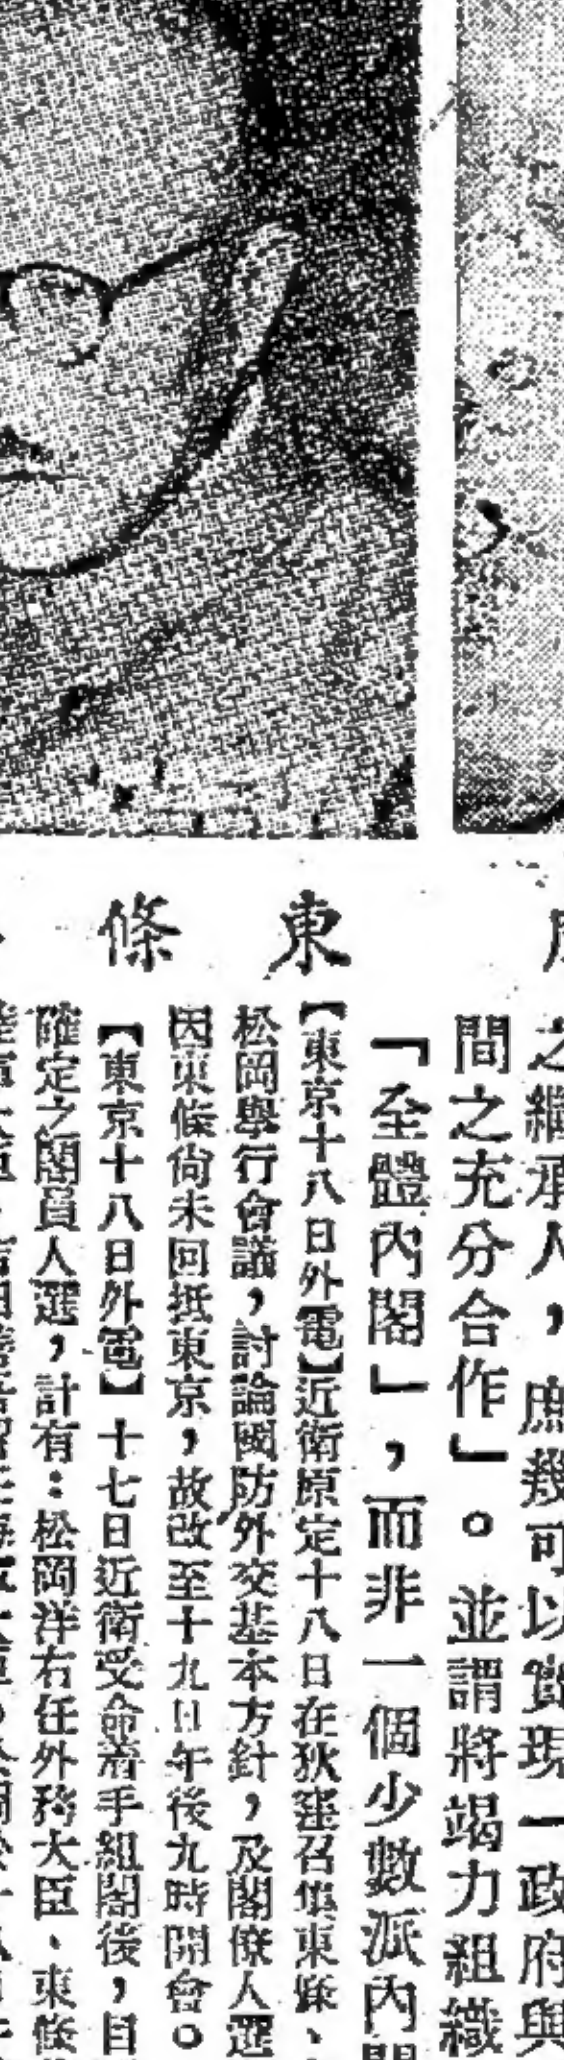 東條
之繼承人，庶幾可以實現一政府與
間之充分合作」。並謂將竭力組織
「全體內閣」，而非一個少數派內閣
【東京十八日外電】近衛原定十八日在荻窪召集東條、
松岡舉行會議，討論國防外交基本方針，及閣僚人選
因東條尚未回抵東京，故改至十九日午後九時開會。
【東京十八日外電】十七日近衛受命着手組閣後，目
確定之閣員人選，計有：松岡洋右任外務大臣、東條